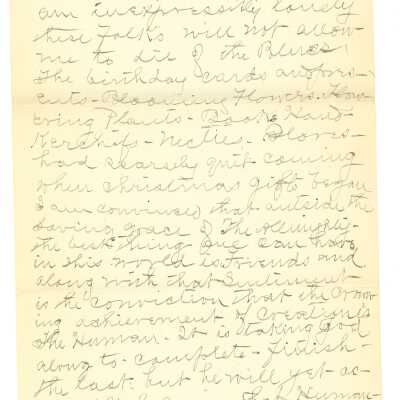 am inexpressibly lonely
these folks will not allow
me to die of the Blues.
The birthday cards and pres-
ents - Blooming Flowers - Flow-
ering Plants - Books Hand-
Kerchifs - Necties - Gloves -
had scarsely quit coming
when christmas gifts began
I am convinced that outside the
saving grace of The Allmighty
the best thing one can have
in this world is Friends and
along with that Sentiment
is the conviction that the crown-
ing achievement of Creation is
The Human - It is taking God
along to - complete - Finish -
the last: but he will yet ac-
Human -